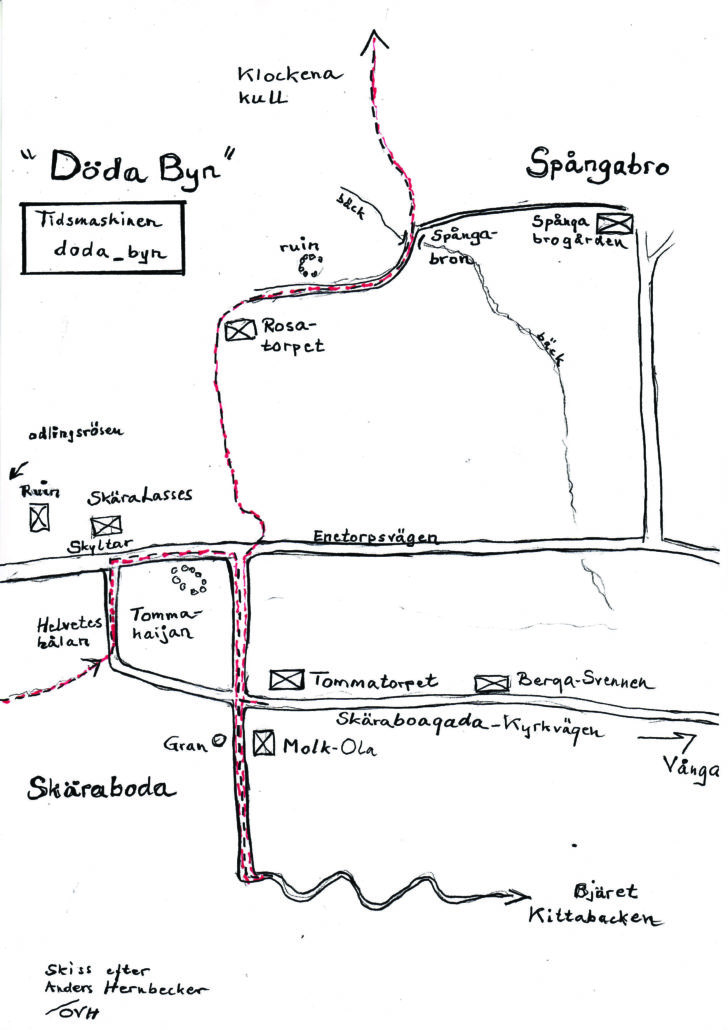 Klockena
kull
"Döda Byn"
Spångabro
Tidsmaskinen
doda_byn
bäck
Spånga
brogården
Spånga-
bron
ruin
Rosa-
torpet
bäck
odlingsrösen
Ruin
SkäraLasses
Skyltar
Enetorpsvägen
Helvetes
hålan
Tomma-
haijan
Tommatorpet
Berga-Svennen
Skäraboagada-Kyrkvägen
Gran
Molk-Ola
Vånga
Skäraboda
Bjäret
Kittabacken
Skiss efter
Anders Hernbecker
OVH